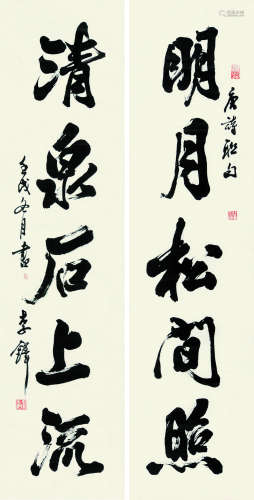 明月松间照
唐诗联句
清泉石上流
壬戌冬月书
李铎